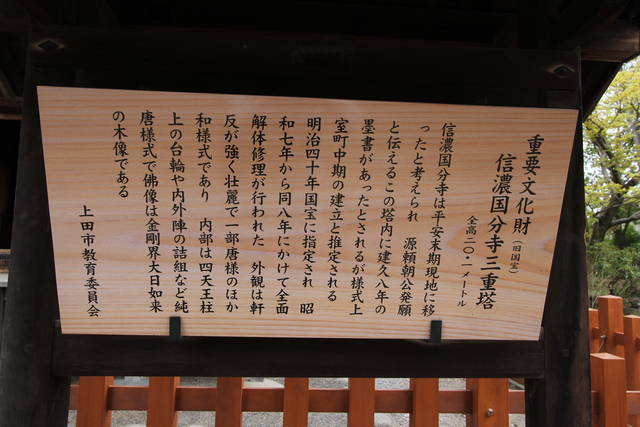 重要文化財（旧国宝）
信濃国分寺三重塔
全高二〇・一メートル
信濃国分寺は平安末期現地に移
ったと考えられ　源頼朝公発願
と伝えるこの塔内に建久八年の
墨書があったとされるが様式上
室町中期の建立と推定される
明治四十年国宝に指定され　昭
和七年から同八年にかけて全面
解体修理が行われた　外観は軒
反が強く壮麗で一部唐様のほか
和様式であり　内部は四天王柱
上の台輪や内外陣の詰組など純
唐様式で佛像は金剛界大日如来
の木像である
上田市教育委員会